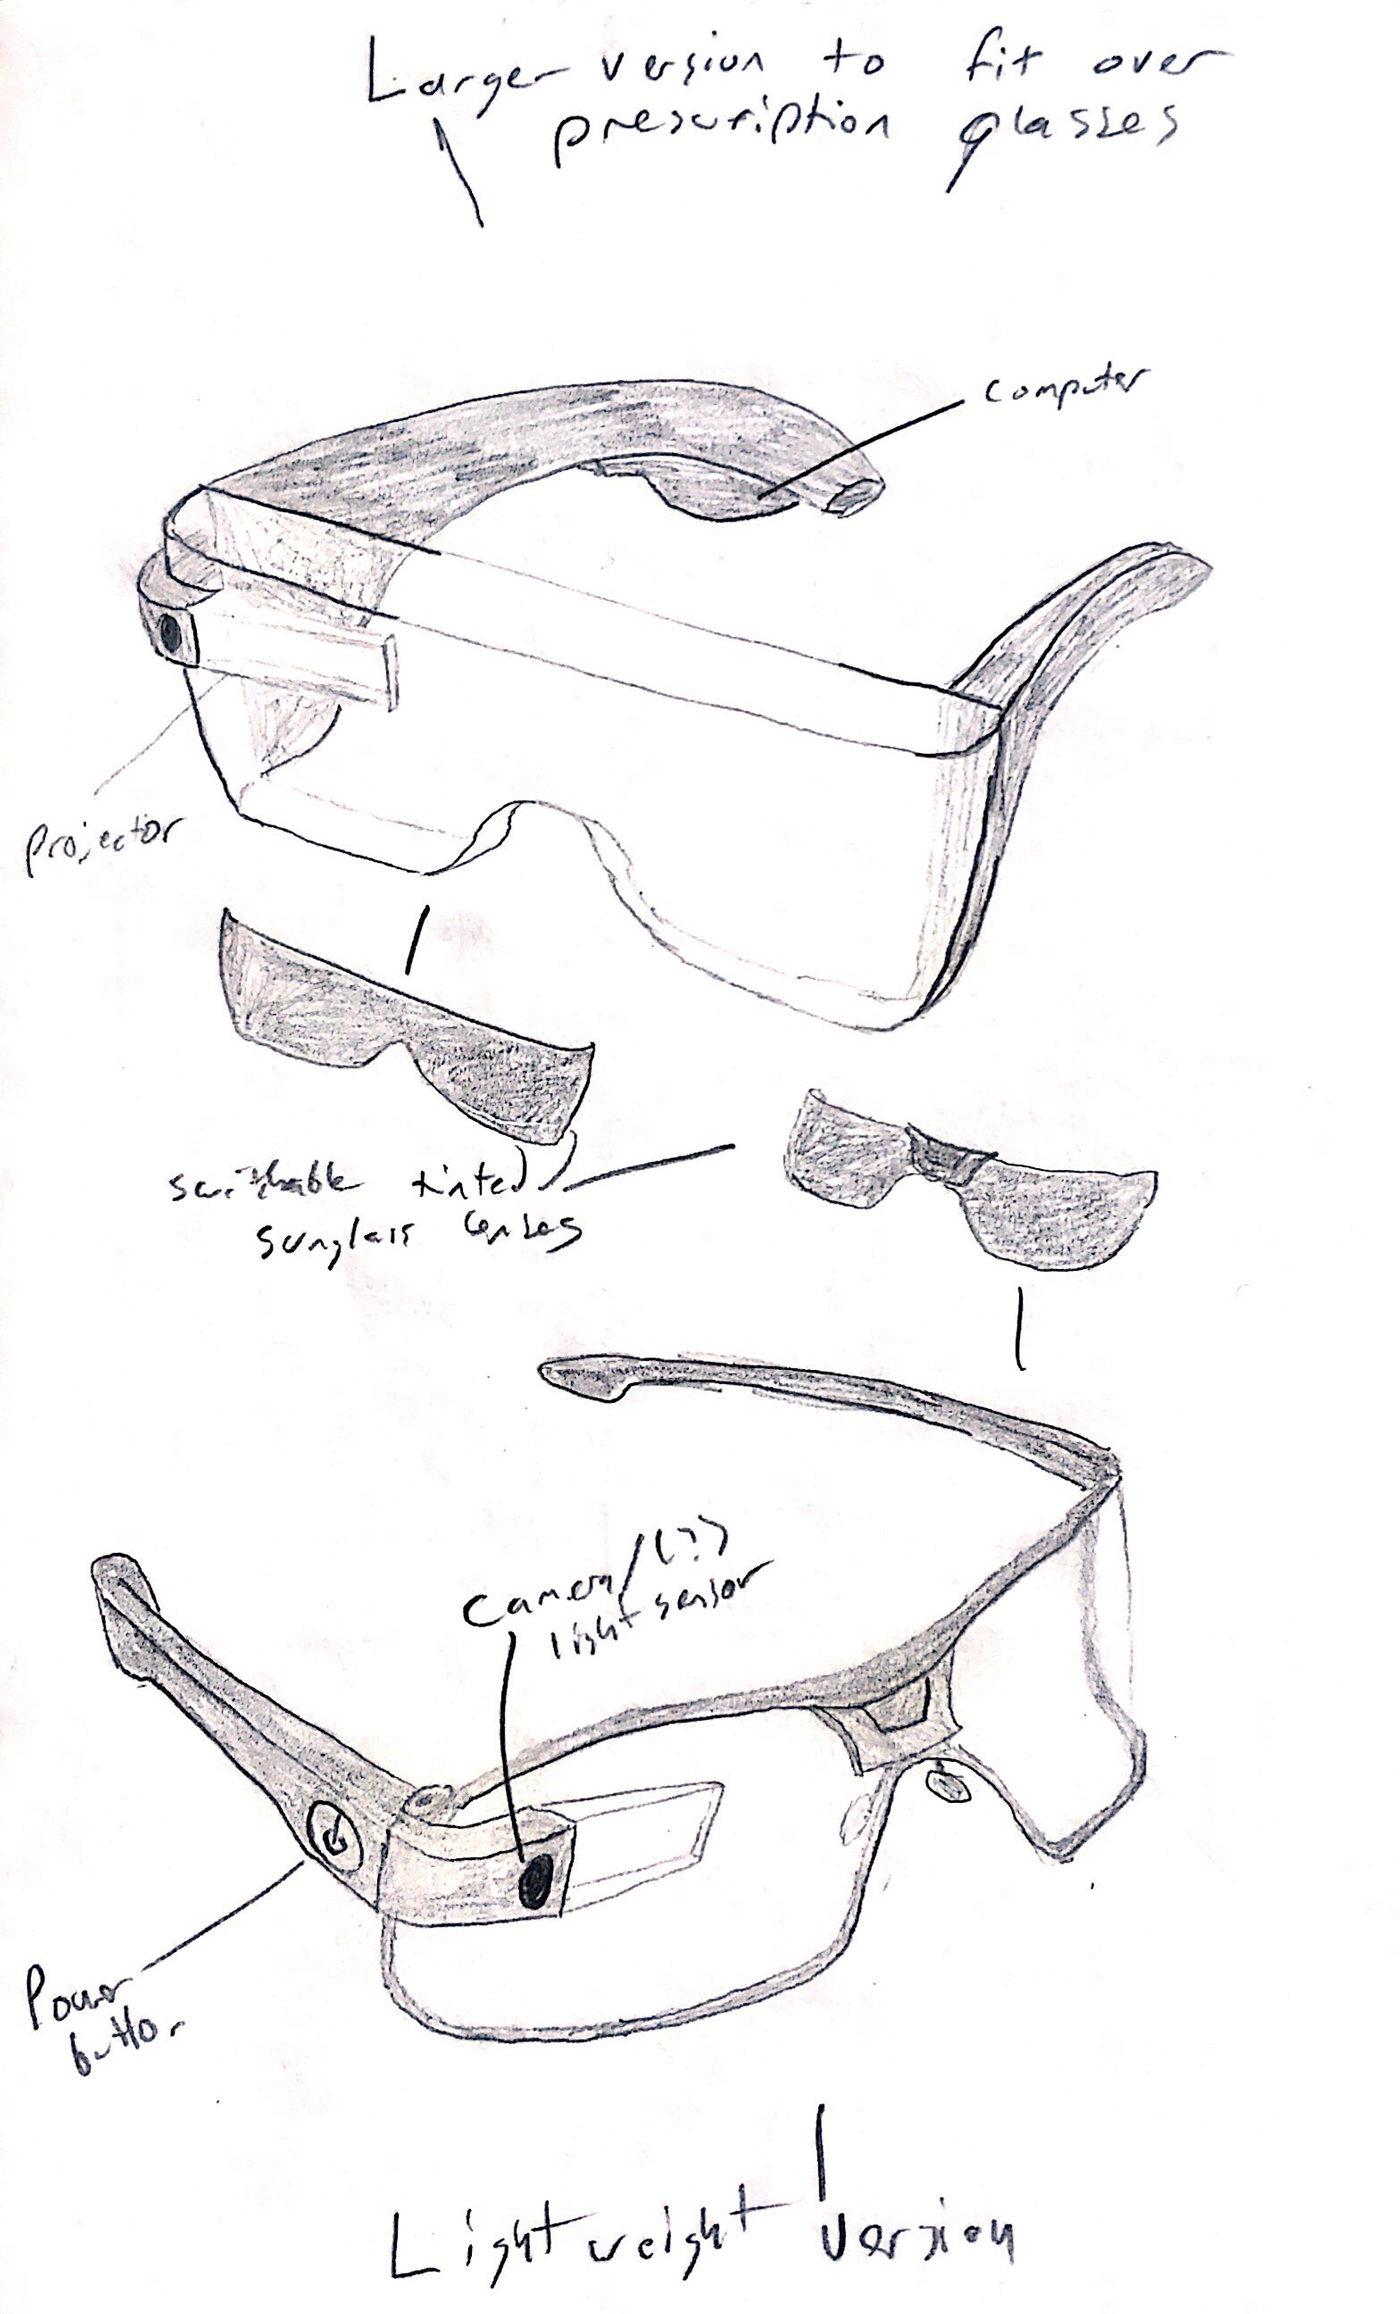 Larger version to fit over
prescription glasses
computer
Projector
switchable tinted
sunglass lenses
Camera/(?)
light sensor
Power
button
Lightweight version